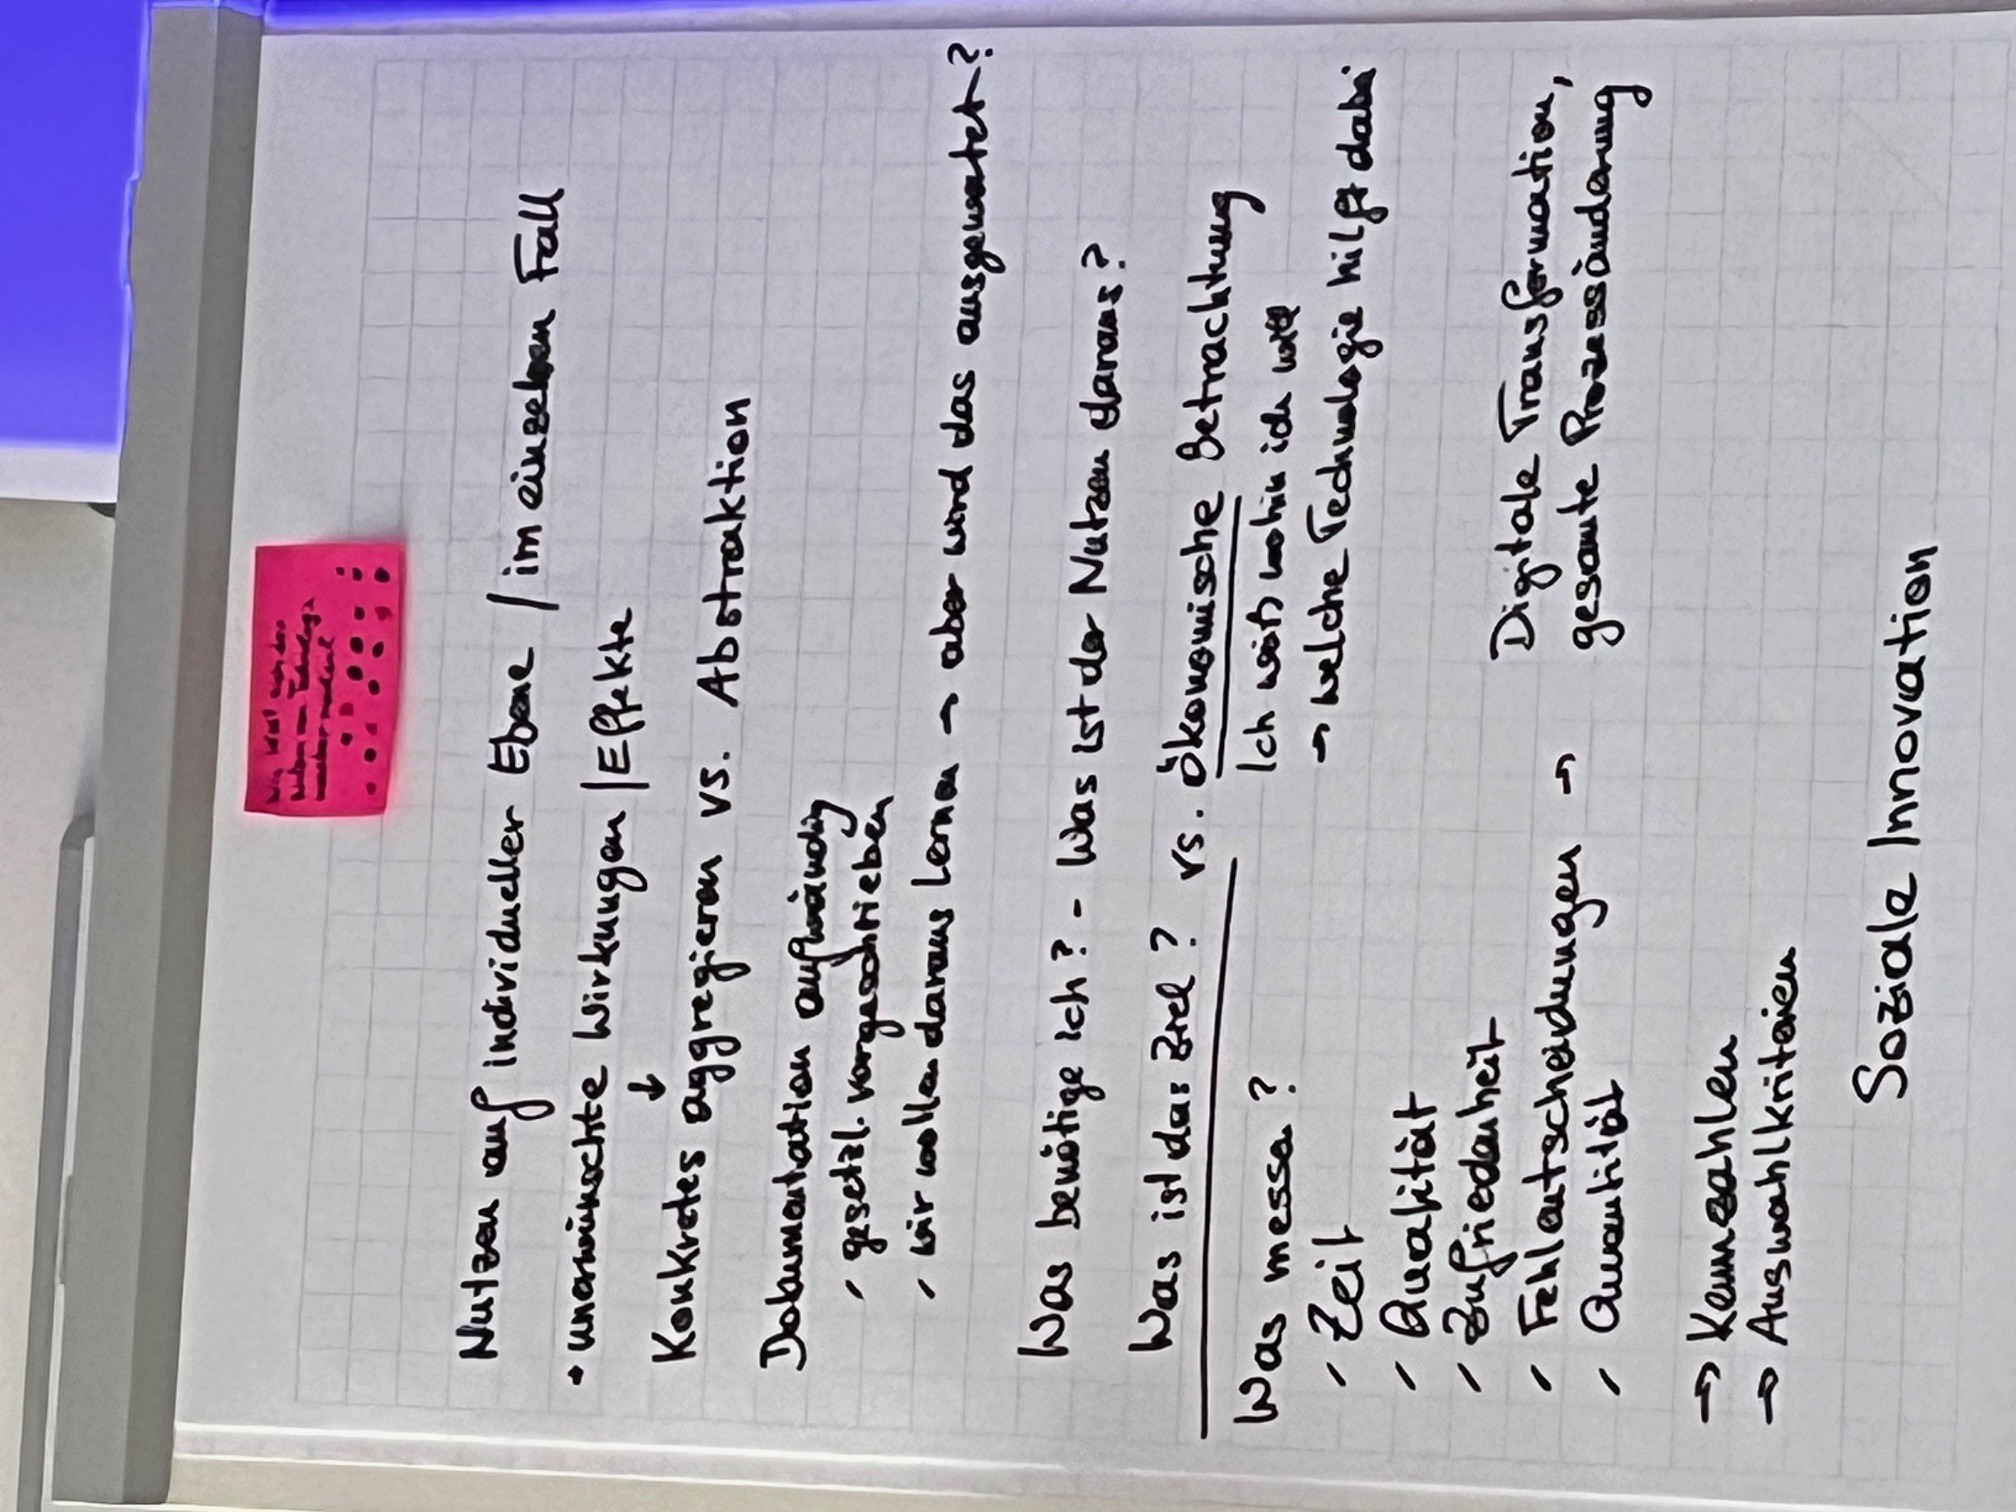 Nutzen auf individueller Ebene / im einzelnen Fall
• unerwünschte Wirkungen / Effekte
↓
Konkretes aggregieren vs. Abstraktion
Dokumentation aufwändig
- gesetzl. vorgeschrieben
- wir wollen daraus lernen → aber wird das ausgewertet?
Was benötige ich? - Was ist der Nutzen daraus?
Was ist das Ziel? vs. Ökonomische Betrachtung
Ich weiß wohin ich will
→ welche Technologie hilft dabei
Was messen?
- Zeit
- Qualität
- Zufriedenheit
- Fehlentscheidungen → Digitale Transformation,
- Quantität gesamte Prozessänderung
→ Kennzahlen
→ Auswahlkriterien
Soziale Innovation